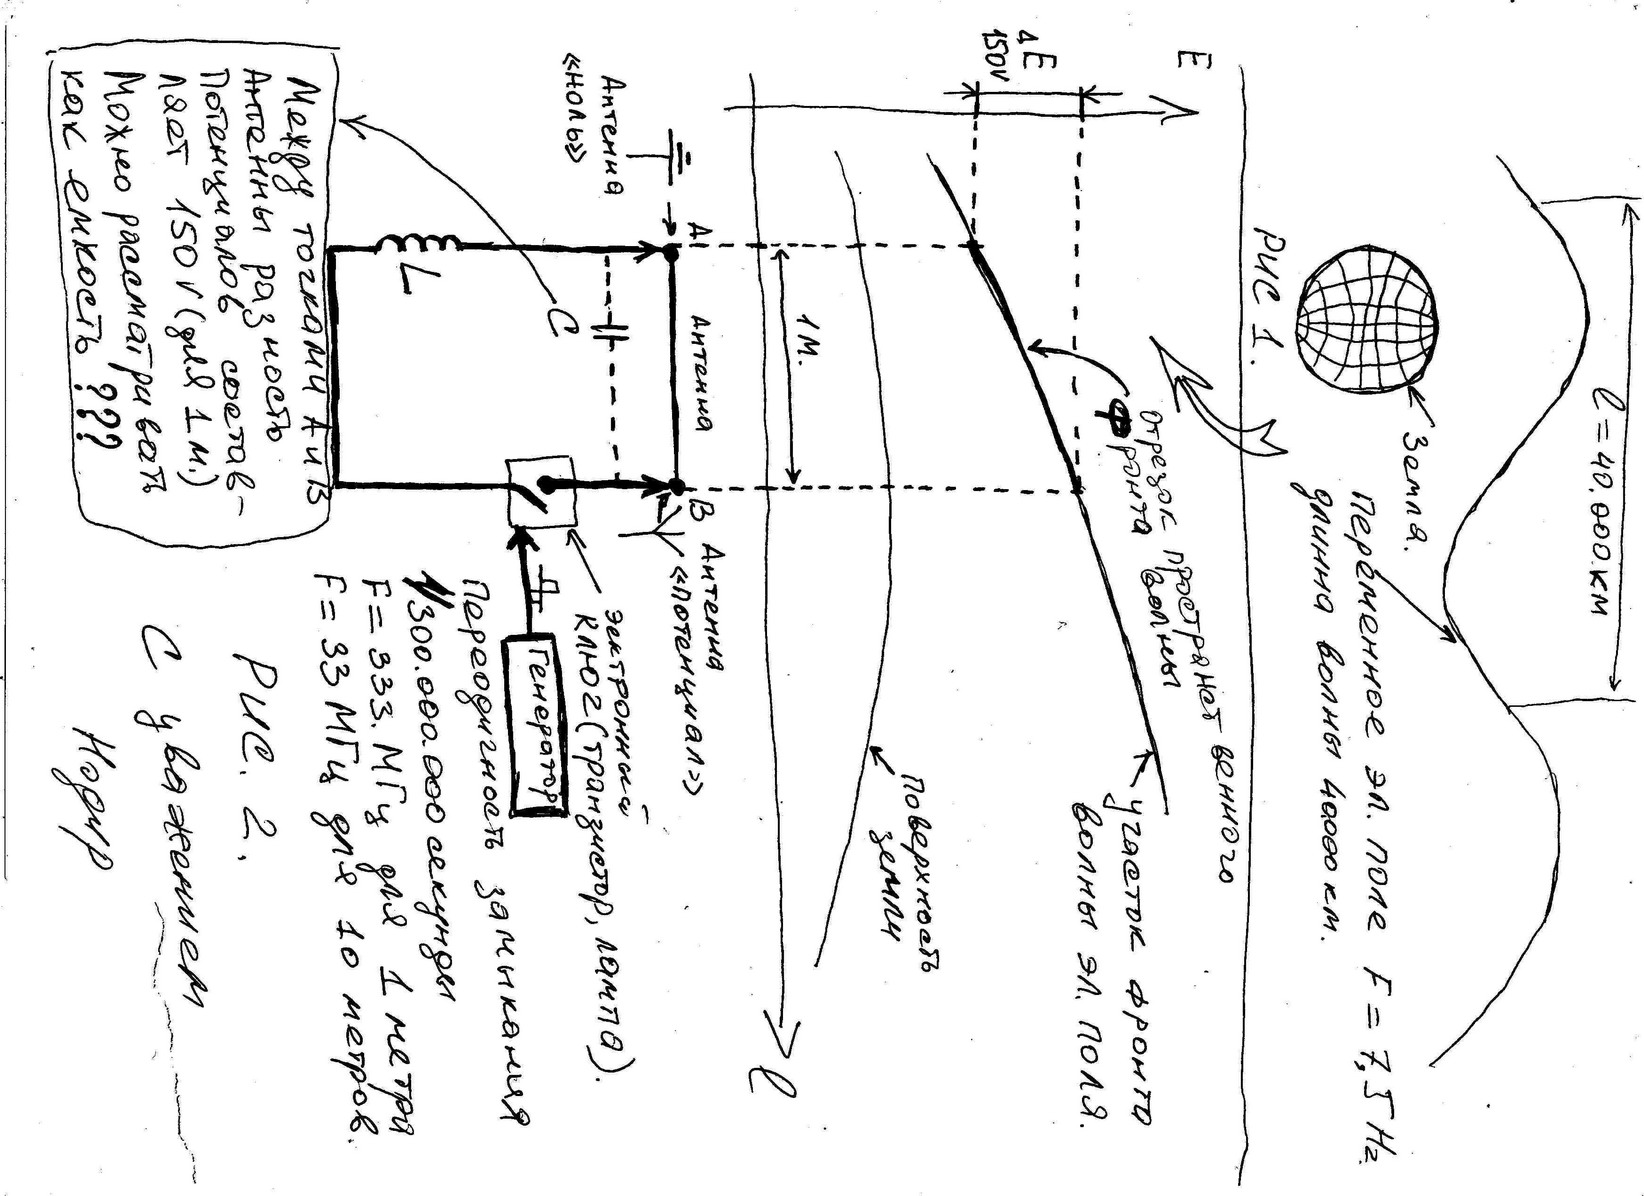 l = 40.000 км
Земля.
Переменное эл. поле F = 7,5 Hz
длинна волны 40000 км.
РИС 1.
E
ΔE
150V
Отрезок пространственного
фронта волны
участок фронта
волны эл. поля.
Поверхность
земли
l
1 м.
Антенна
«ноль»
A
Антенна
B
Антенна
«потенциал»
C
L
электронный
ключ (транзистор, лампа).
Генератор
Переодичность замыкания
1/300.000.000 секунды
F = 333. МГц для 1 метра
F = 33 МГц для 10 метров.
Между точками А и В
Антенны разность
Потенциалов состав-
ляет 150 V (для 1 м.)
Можно рассматривать
как емкость ???
РИС. 2.
С уважением
Надир